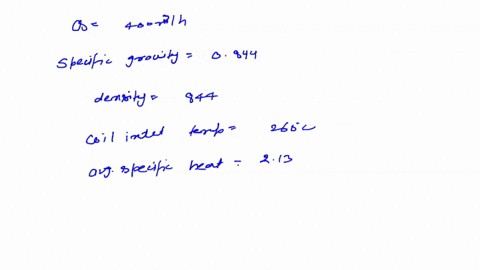 Q = 400 m³/h
Specific gravity = 0.844
density = 844
Coil inlet temp = 260°C
avg. specific heat = 2.13